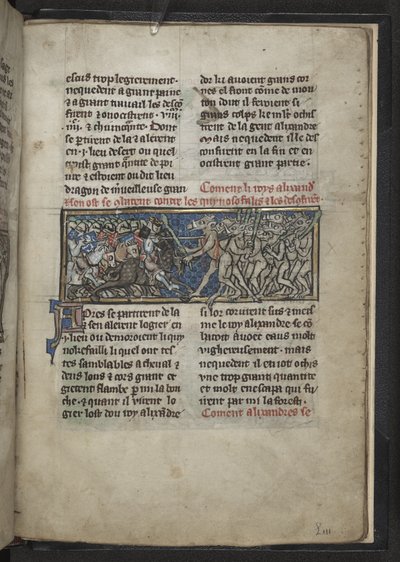 et lius trop legierement.
nequedent a grant paine
& a grant trauail les desco
firent & en ocistrent. viij.
iiij. & chuinquãte. Dont
se ptirent de la & alerent
en .i. lieu desert ou quel
croist grant qũtite de poi
ure & estoient ou dit lieu
dragon de m̃ueilleuse gran
dor ki auoient grans cor
nes el front cõme de mou
ton dont il feroient si
grans colps ke mlt̃ ochis
trent de la gent alixandre
mais nequedent il les des
confirent en la fin et en
ocistrent grant partie.
Coment li roys alixand̃
res
lor ost se cõbatent contre les cui nosfalis & les desconfirent.
Apres se partirent de la
& sen alerent logier en
.i. lieu ou demoroient li quy
nokefailli li quel ont tes
tes samblables a cheual &
dens lons & cors grant et
gietent flambe p̃mi la bou
che. & quant il virent lo
gier lost dou roy alixãdre
si lor coururent sus & meis
me le roy alixandre se cõ
batoit auoec eaus molt
vighereusement. mais
nequedent il en iot ochis
vne trop grant quantite
et molt en escapa qui fui
rent par mi la forest.
Coment alixandres se